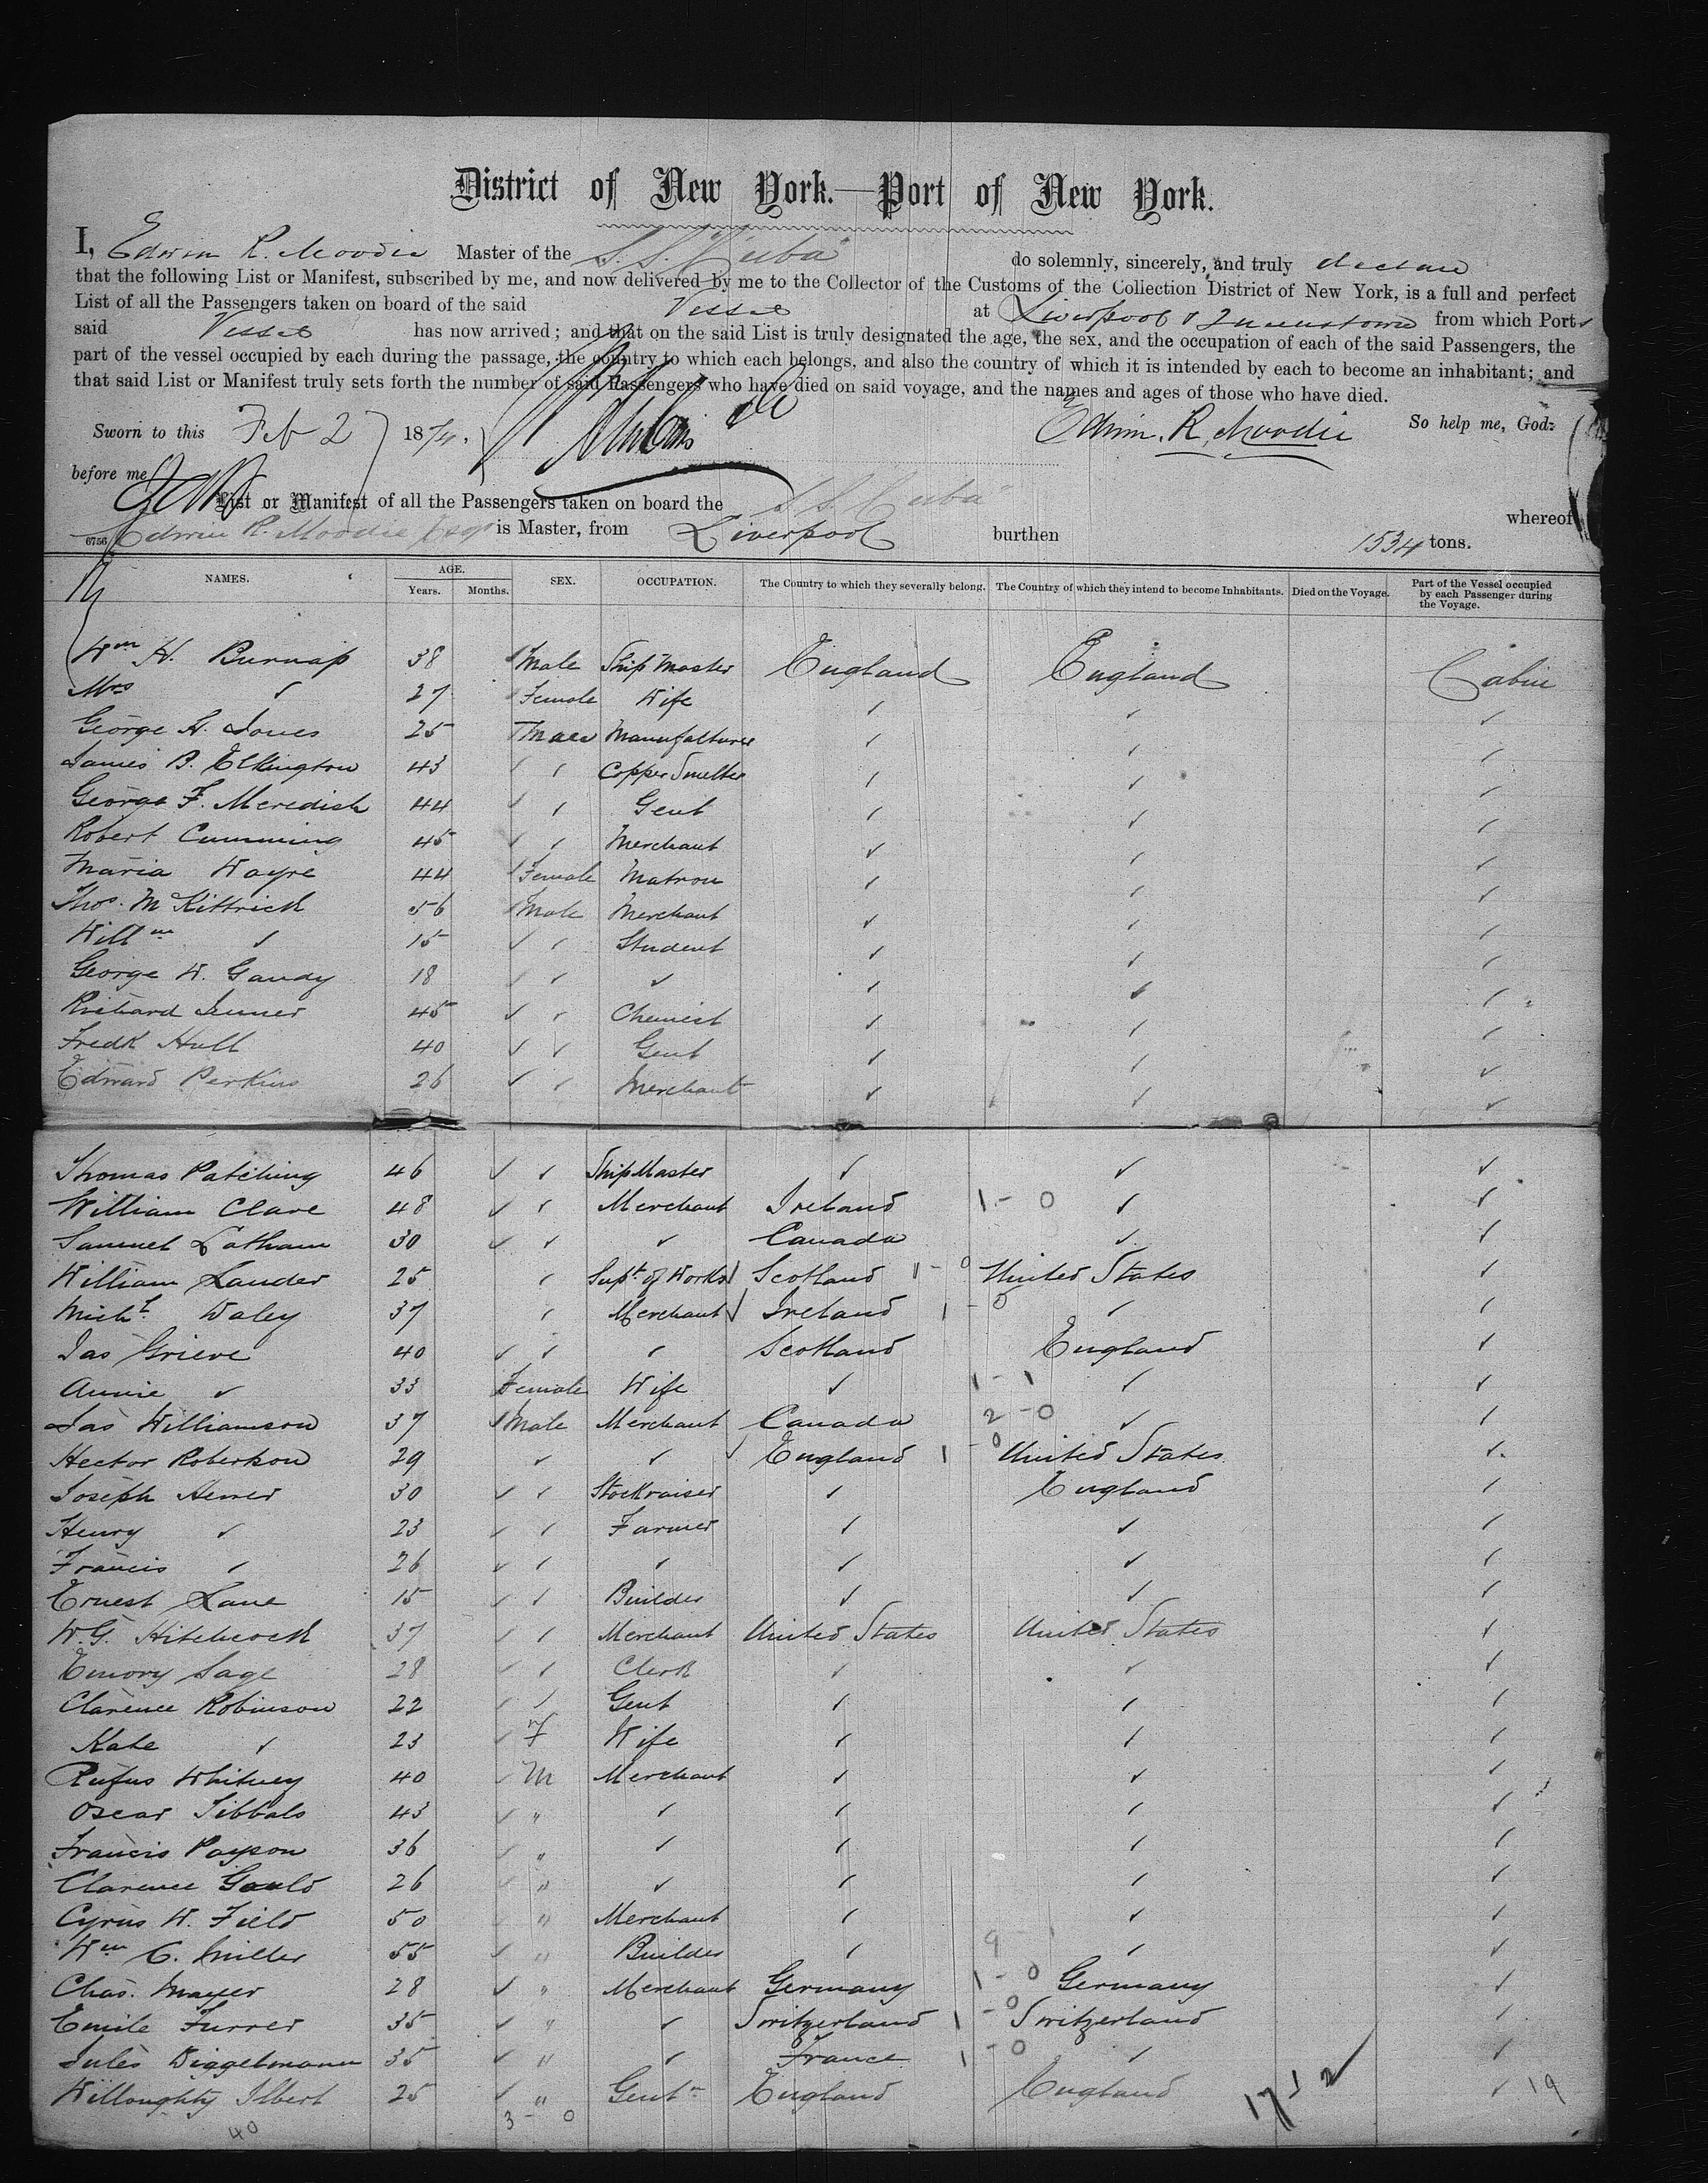 District of New York.—Port of New York.
I, Edwin R. Moodie Master of the S. S. "Cuba" do solemnly, sincerely, and truly declare
that the following List or Manifest, subscribed by me, and now delivered by me to the Collector of the Customs of the Collection District of New York, is a full and perfect
List of all the Passengers taken on board of the said Vessel at Liverpool & Queenstown from which Ports
said Vessel has now arrived; and that on the said List is truly designated the age, the sex, and the occupation of each of the said Passengers, the
part of the vessel occupied by each during the passage, the country to which each belongs, and also the country of which it is intended by each to become an inhabitant; and
that said List or Manifest truly sets forth the number of said Passengers who have died on said voyage, and the names and ages of those who have died.
Sworn to this Feb 2 1874. Edwin. R. Moodie So help me, God:
before me
List or Manifest of all the Passengers taken on board the S. S. "Cuba" whereof
6756 Edwin R. Moodie Esqr is Master, from Liverpool burthen 1534 tons.
NAMES. AGE. Years. Months. SEX. OCCUPATION. The Country to which they severally belong. The Country of which they intend to become Inhabitants. Died on the Voyage. Part of the Vessel occupied by each Passenger during the Voyage.
Wm H. Burnap 38 Male Ship Master England England Cabin
Mrs ✓ 27 Female Wife ✓ ✓ ✓
George H. Jones 25 Male Manufacturer ✓ ✓ ✓
James B. Elkington 43 ✓ ✓ Copper Smelter ✓ ✓ ✓
George F. Meredish 44 ✓ ✓ Gent ✓ ✓ ✓
Robert Cumming 45 ✓ ✓ Merchant ✓ ✓ ✓
Maria Wayre 44 Female Matron ✓ ✓ ✓
Thos. McKittrick 56 Male Merchant ✓ ✓ ✓
Willm ✓ 15 ✓ ✓ Student ✓ ✓ ✓
George W. Gandy 18 ✓ ✓ ✓ ✓ ✓ ✓
Richard Jenner 45 ✓ ✓ Chemist ✓ ✓ ✓
Fredk Hull 40 ✓ ✓ Gent ✓ ✓ ✓
Edward Perkins 26 ✓ ✓ Merchant ✓ ✓ ✓
Thomas Patching 46 ✓ ✓ Ship Master ✓ ✓ ✓
William Clare 48 ✓ ✓ Merchant Ireland 1 - 0 ✓ ✓
Samuel Latham 30 ✓ ✓ ✓ Canada ✓ ✓
William Lauder 25 ✓ Supt of Works Scotland 1 - 0 United States ✓
Michl. Daley 37 ✓ Merchant Ireland 1 - 0 ✓ ✓
Jas Grieve 40 ✓ ✓ ✓ Scotland England ✓
Annie ✓ 33 Female Wife ✓ 1 - 1 ✓ ✓
Jas Williamson 37 Male Merchant Canada 2 - 0 ✓ ✓
Hector Robertson 29 ✓ ✓ England 1 - 0 United States ✓
Joseph Hemer 30 ✓ ✓ Stockraiser ✓ England ✓
Henry ✓ 23 ✓ ✓ Farmer ✓ ✓ ✓
Francis ✓ 26 ✓ ✓ ✓ ✓ ✓ ✓
Ernest Lane 15 ✓ ✓ Builder ✓ ✓ ✓
W. G. Hitchcock 37 ✓ ✓ Merchant United States United States ✓
Emory Sage 28 ✓ ✓ Clerk ✓ ✓ ✓
Clarence Robinson 22 ✓ ✓ Gent ✓ ✓ ✓
Kate ✓ 23 ✓ F Wife ✓ ✓ ✓
Rufus Whitney 40 ✓ M Merchant ✓ ✓ ✓
Oscar Tibbals 43 ✓ " ✓ ✓ ✓ ✓
Francis Payson 36 ✓ " ✓ ✓ ✓ ✓
Clarence Gould 26 ✓ " ✓ ✓ ✓ ✓
Cyrus W. Field 50 ✓ " Merchant ✓ ✓ ✓
Wm C. Miller 55 ✓ " Builder ✓ 9 - 1 ✓ ✓
Chas. Mayer 28 ✓ " Merchant Germany 1 - 0 Germany ✓
Emile Furrer 35 ✓ " ✓ Switzerland 1 - 0 Switzerland ✓
Jules Wiggelmann 35 ✓ " ✓ France 1 - 0 ✓ ✓
Willoughty Ilbert 25 ✓ " Gentn England England ✓ 19
40 3 - 0 17 - 2